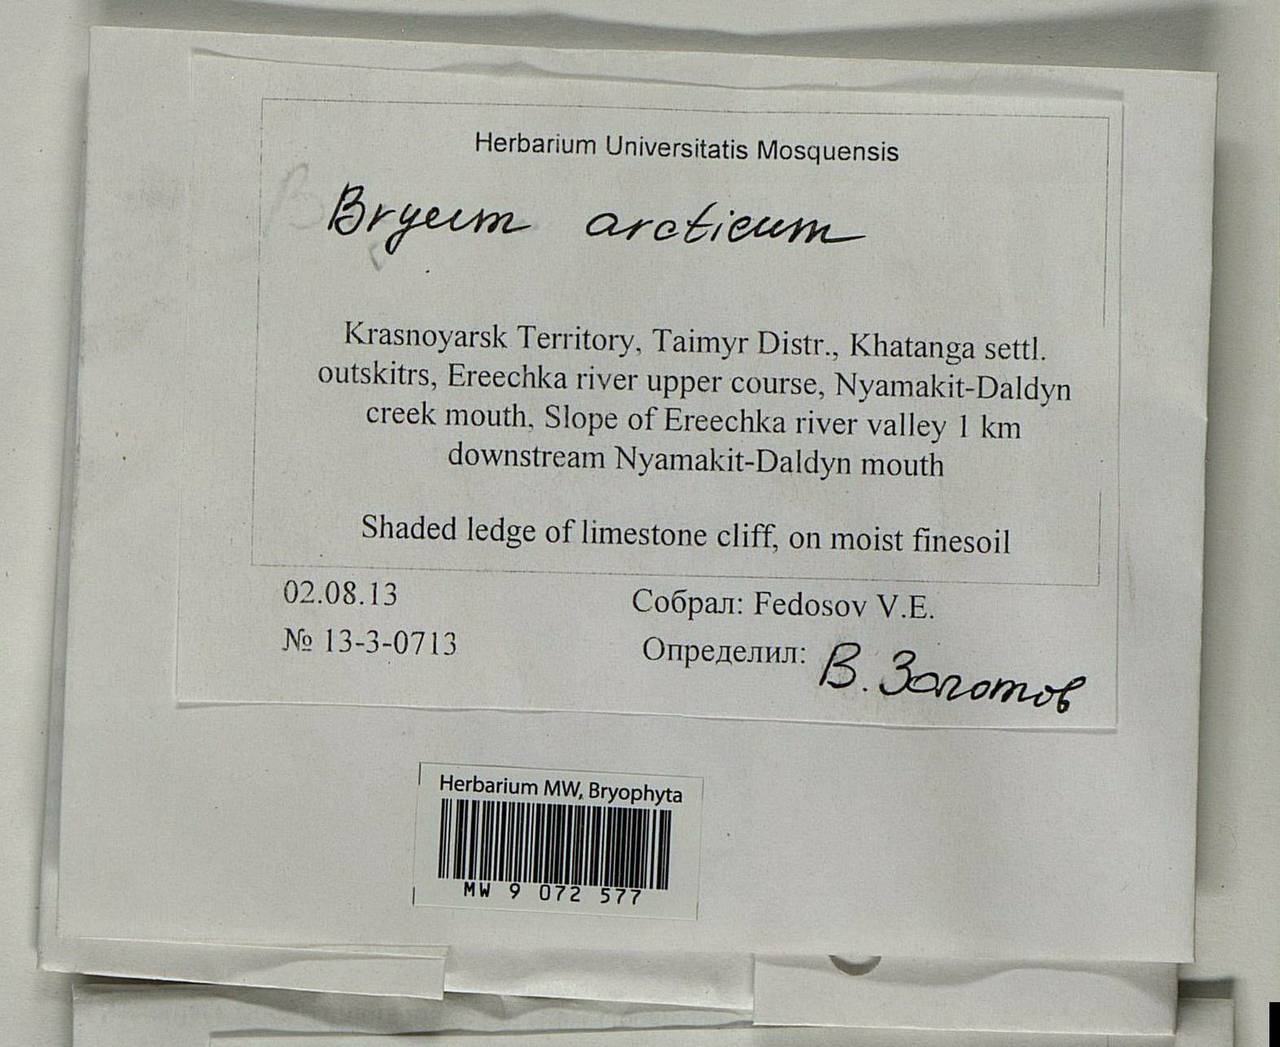 Herbarium Universitatis Mosquensis
Bryum arcticum
Krasnoyarsk Territory, Taimyr Distr., Khatanga settl.
outskitrs, Ereechka river upper course, Nyamakit-Daldyn
creek mouth, Slope of Ereechka river valley 1 km
downstream Nyamakit-Daldyn mouth
Shaded ledge of limestone cliff, on moist finesoil
02.08.13
Собрал: Fedosov V.E.
№ 13-3-0713
Определил: В. Золотов
Herbarium MW, Bryophyta
MW 9 072 577